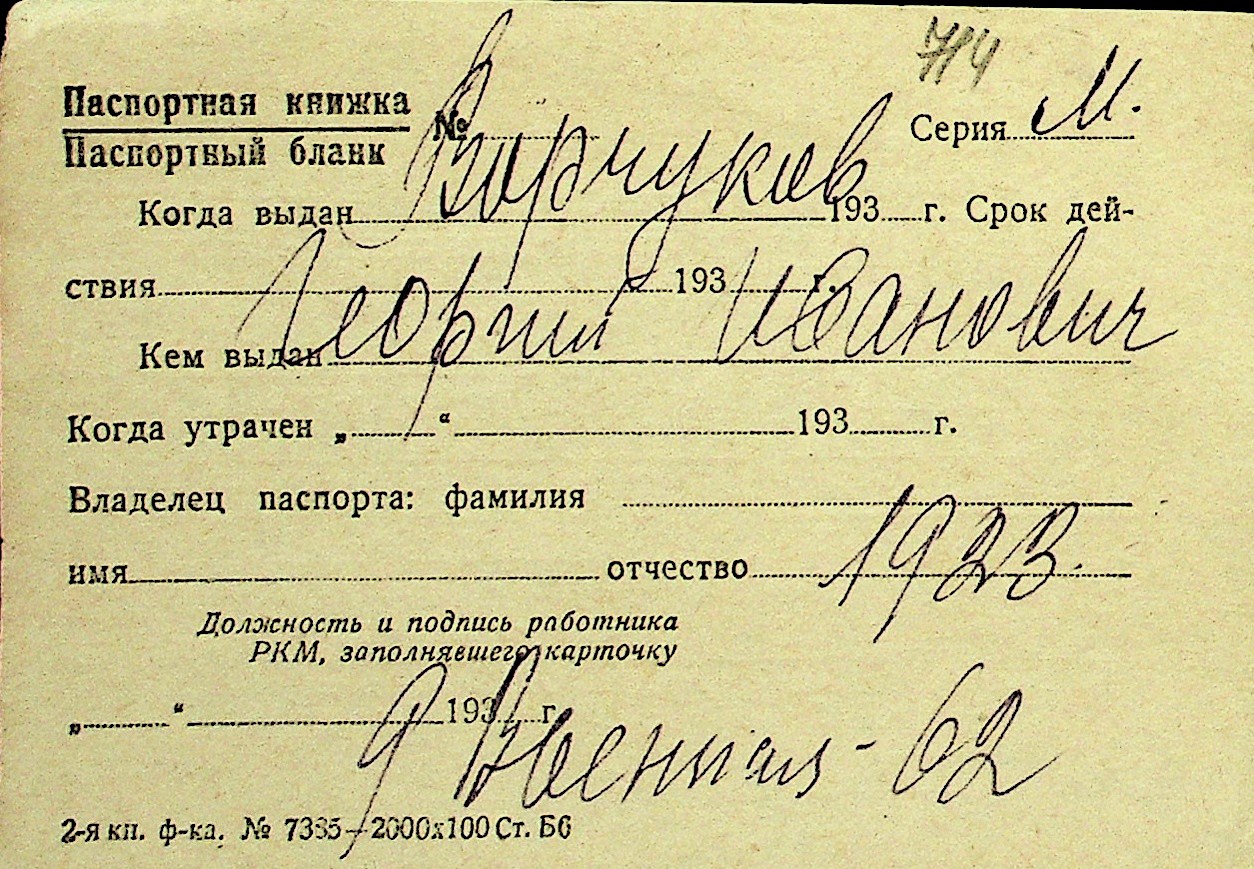 714
Паспортная книжка
Паспортный бланк № Серия М.
Ворчуков
Когда выдан 193 г. Срок дей-
ствия 193 г.
Георгий Иванович
Кем выдан
Когда утрачен „ “ 193 г.
Владелец паспорта: фамилия
1923.
имя отчество
Должность и подпись работника
РКМ, заполнявшего карточку
„ “ 193 г.
9 Военная - 62
2-я кп. ф-ка. № 7335—2000х100 Ст. Бб